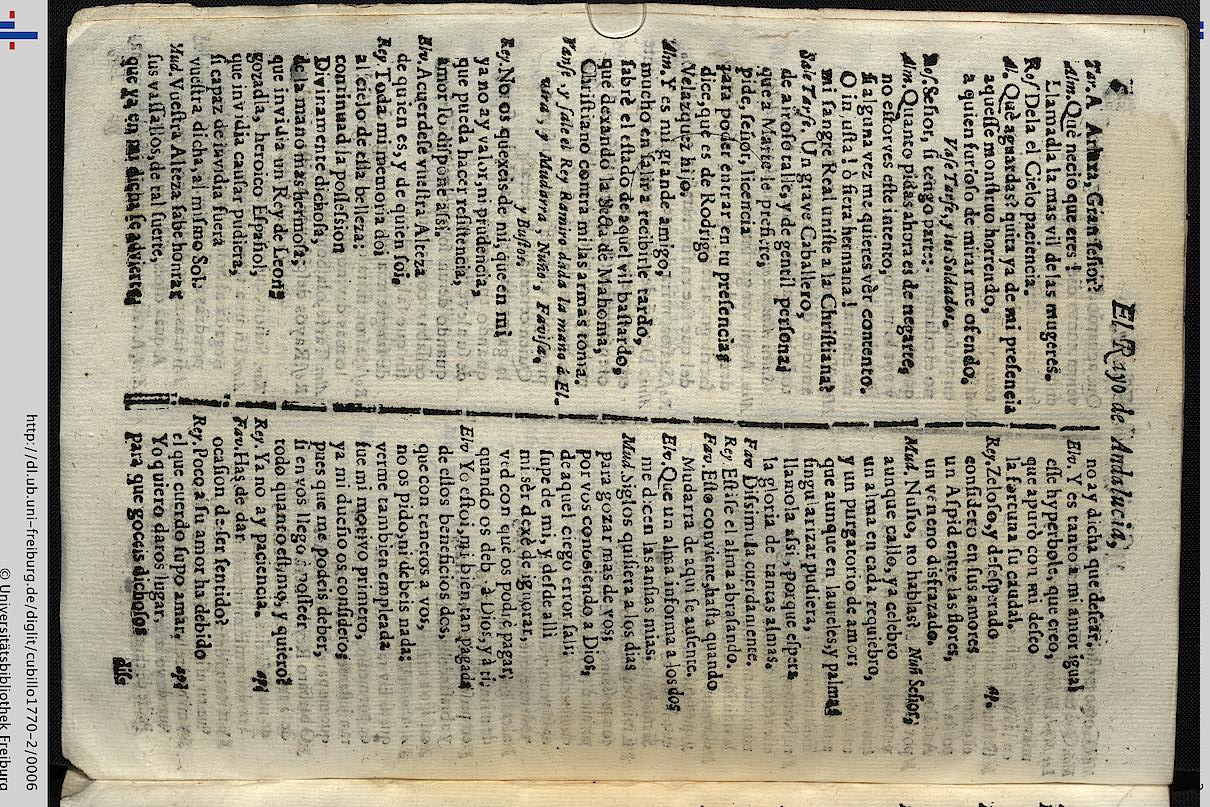 6
El Rayo de Andalucia,
Tar. A Arlaxa, Gran señor?
Alm. Què necio que eres!
Llamadla la mas vil de las mugeres.
Ros. Dela el Cielo paciencia.
Al. Què aguardas? quita ya de mi presencia
aquesse monstruo horrendo,
a quien furioso de mirar me ofendo.
Vase Tarfe, y los Soldados.
Ros. Señor, si tengo parte:-
Alm. Quanto pidas ahora es de negarte,
no estorves este intento,
si alguna vez me quieres vèr contento.
O injusta! ò fiera hermana!
mi sangre Real uniste a la Christiana?
Sale Tarfe. Un grave Caballero,
de airoso talle, y de gentil persona,
que a Marte le prefiere,
pide, señor, licencia
para poder entrar en tu presencia;
dice, que es de Rodrigo
Velazquez hijo.
Alm. Y es mi grande amigo,
mucho en salir a recibirle tardo,
sabrè el estado de aquel vil bastardo,
que dexando la Secta de Mahoma,
Christiano contra mi las armas toma.
Vanse, y sale el Rey Ramiro dada la mano à El-
vira, y Mudarra, Nuño, Favila,
y Bustos.
Rey. No os quexeis de mi, que en mi
ya no ay valor, ni prudencia,
que pueda hacer resistencia,
amor lo dispone assi.
Elv. Acuerdese vuestra Alteza
de quien es, y de quien soi.
Rey. Toda mi memoria doi
al cielo de essa belleza:
continuad la possession
Divinamente dichosa,
de la mano mas hermosa,
que invidia un Rey de Leon:
gozadla, heroico Español,
que invidia causar pudiera,
si capaz de invidia fuera
vuestra dicha, al mismo Sol.
Mud. Vuestra Alteza sabe honrar
sus vassallos, de tal suerte,
que ya en mi dicha se advierte,
no ay dicha que desear.
Elv. Y es tanto a mi amor igual
esse hyperbole, que creo,
que apurò con mi deseo
la fortuna su caudal.
Rey. Zeloso, y desesperado ap.
considero en sus amores
un Aspid entre las flores,
un veneno disfrazado.
Mud. Nuño, no hablas? Nuñ. Señor,
aunque callo, ya celebro
un alma en cada requiebro,
y un purgatorio de amor:
que aunque en laureles, y palmas
singularizar pudiera,
llamola assi, porque espera
la gloria de tantas almas.
Fav. Dissimula cuerdamente.
Rey. Estàse el alma abrasando.
Fav. Esto conviene, hasta quando
Mudarra de aqui se ausente.
Elv. Que un alma informa a los dos
me dicen las ansias mias.
Mud. Siglos quisiera a los dias
para gozar mas de vos;
por vos conociendo a Dios,
de aquel ciego error salì;
supe de mi, y desde alli
mi sèr dexè de ignorar,
ved con què os podrè pagar,
quando os debo à Dios, y à ti.
Elv. Yo estoi, mi bien, tan pagada
de essos beneficios dos,
que con teneros a vos,
no os pido, ni debeis nada:
verme tambien empleada
fue mi motivo primero,
ya mi dueño os considero;
pues que me podeis deber,
si en vos llego a posseer
todo quanto estimo, y quiero?
Rey. Ya no ay paciencia. ap.
Fav. Has de dar
ocasion de ser sentido?
Rey. Poco a su amor ha debido
el que cuerdo supo amar. ap.
Yo quiero daros lugar,
para que goceis dichosos
dis-
http://dl.ub.uni-freiburg.de/diglit/cubillo1770-2/0006
© Universitätsbibliothek Freiburg